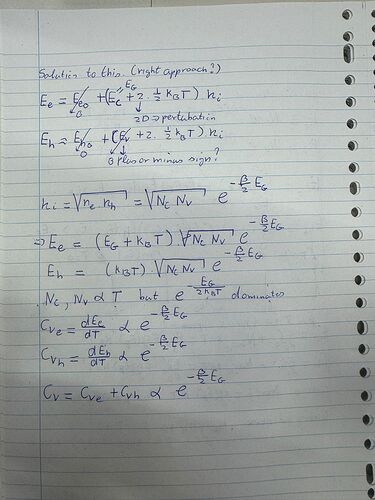 Solution to this. (right approach?)
E_G
E_e = E_e0 + (E_c + 2 · ½ k_B T) n_i
0 2D → perturbation
E_h = E_h0 + (E_v + 2 · ½ k_B T) n_i
0 0 plus or minus sign?
n_i = √(n_e n_h) = √(N_c N_v) e^(-β/2 E_G)
⇒ E_e = (E_G + k_B T) · √(N_c N_v) e^(-β/2 E_G)
E_h = (k_B T) · √(N_c N_v) e^(-β/2 E_G)
N_c, N_v ∝ T but e^(-E_G/2k_BT) dominates
C_ve = dE_e/dT ∝ e^(-β/2 E_G)
C_vh = dE_h/dT ∝ e^(-β/2 E_G)
C_v = C_ve + C_vh ∝ e^(-β/2 E_G)